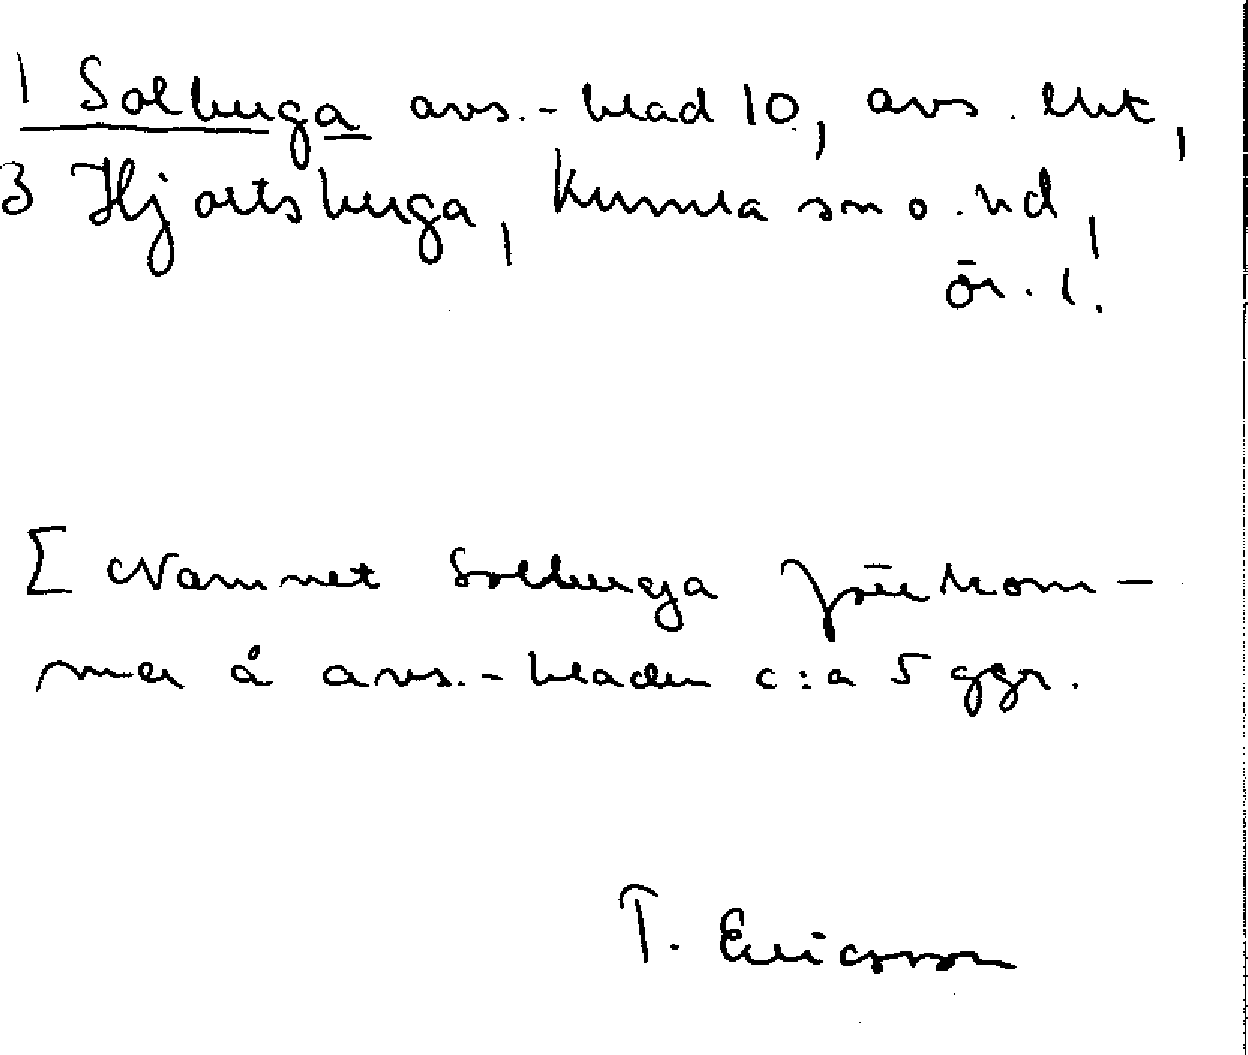 1 Solberga avs.-blad 10, avs. till,
3 Hjortsberga, Kumla sn o. hd,
ör. l.
[Namnet Solberga förekom-
mer å avs.-bladen c:a 5 ggr.
T. Ericsson